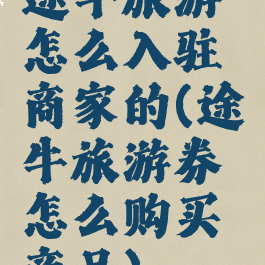 途牛旅游
怎么入驻
商家的(途
牛旅游券
怎么购买
产品)